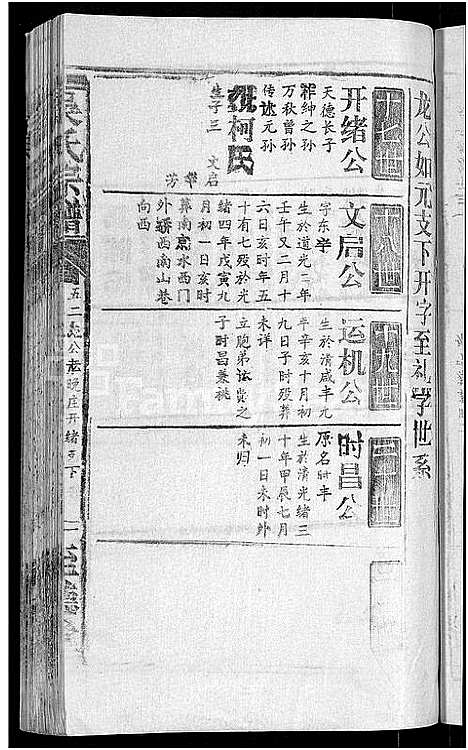 龙公如元支下开字至礼字世系
开绪公
天德长子
祥绅之孙
万秋曾孙
传述元孙
配柯氏
生子三 文启
华
芳
文启公
字东辛
生於道光二年
壬午又二月十
六日亥时年五
十有七殁於光
绪四年戊寅九
月初一日亥时
葬南京水西门
外西南山巷
向西
运机公
生於清咸丰元
年辛亥十月初
九日子时殁葬
未详
立胞弟法赏之
子时昌兼祧
时昌公
原名时丰
生於清光绪三
十年甲辰七月
初一日未时外
未归
吴氏宗谱
五二龙公晚庄开绪支下